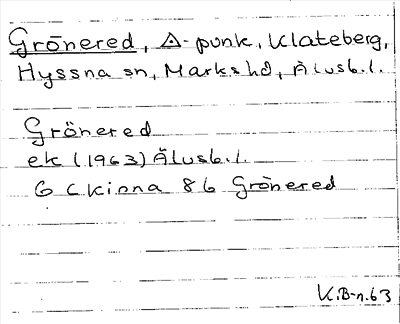 Grönered, △-punk, Klateberg,
Hyssna sn, Marks hd, Älvsb. l.
Grönered
ek (1963) Älvsb. l.
6 C Kinna 8b Grönered
K.B-n. 63